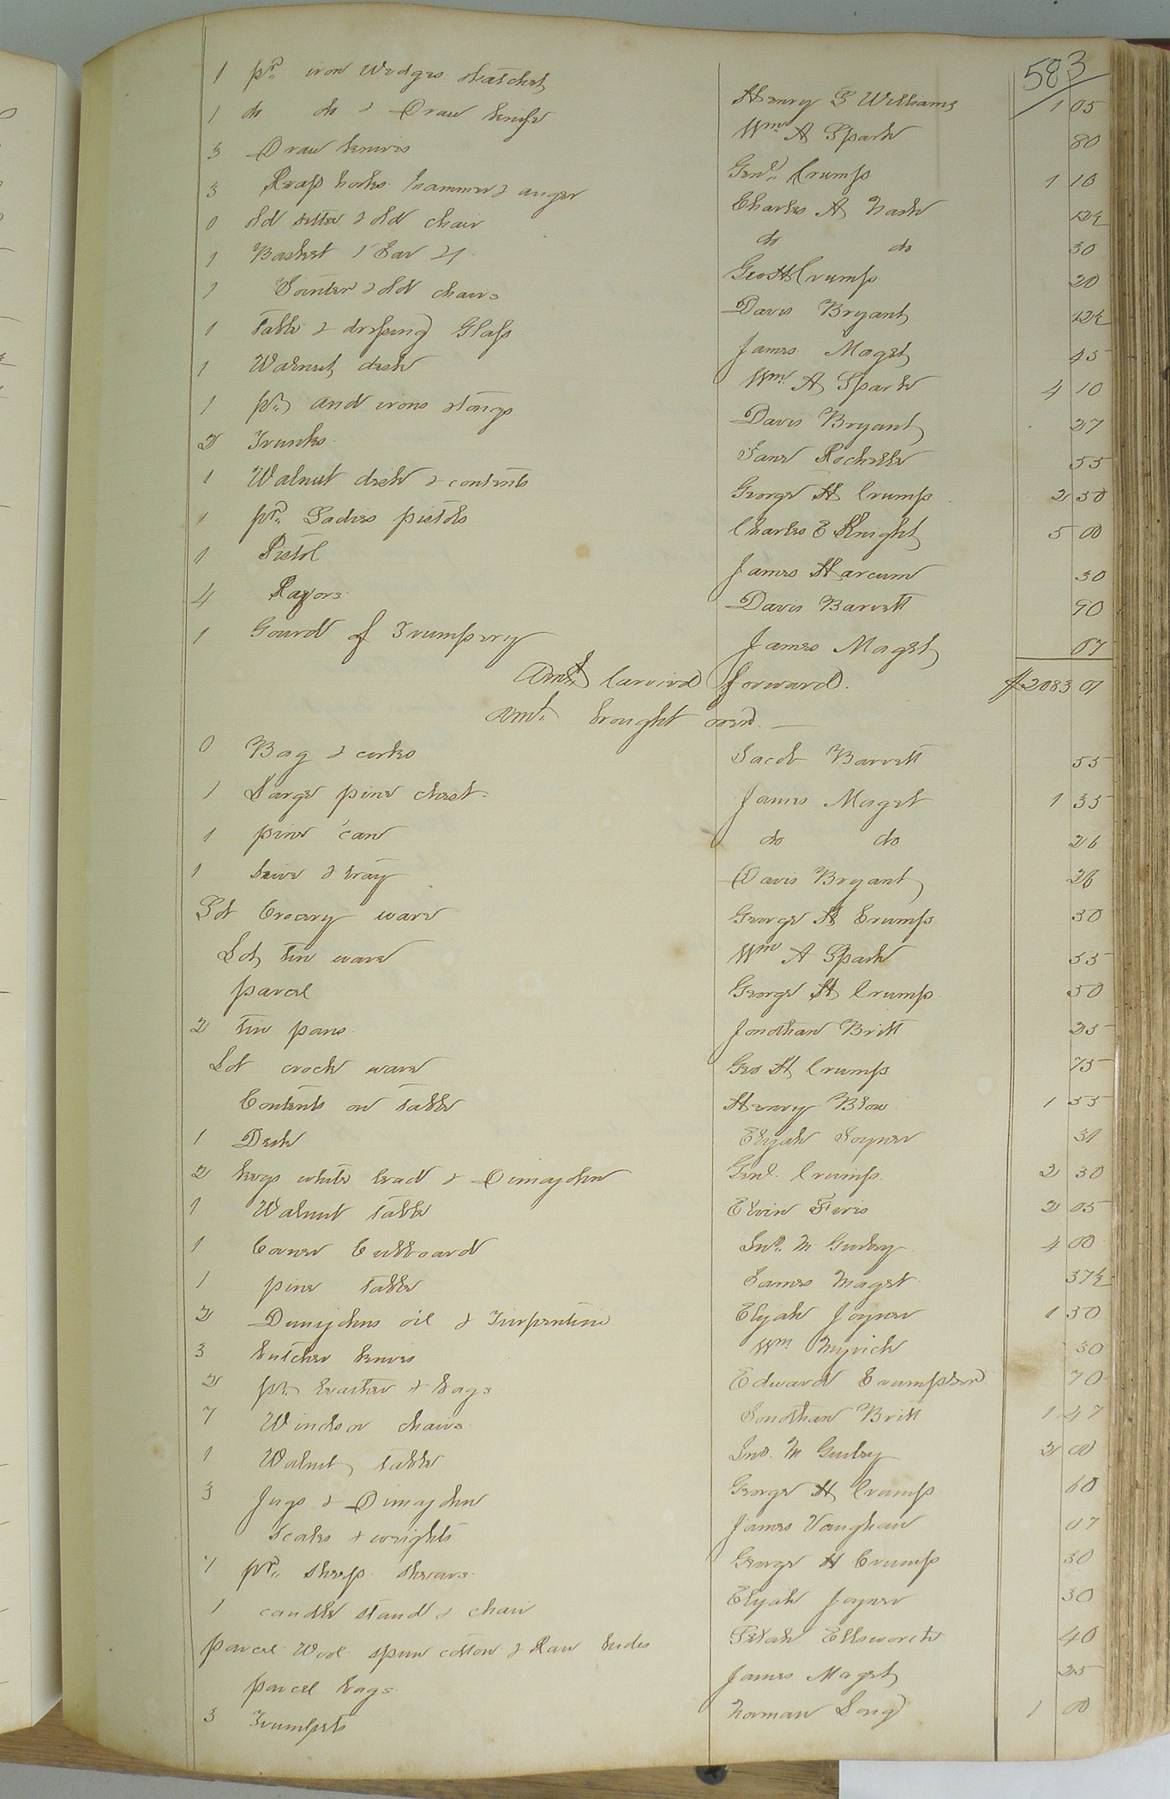 583
1 pr. iron Wedges & hatchet Henry B Williams 1 05
1 do do & Draw knife Wm A Spark 80
3 Draw knives Genl. Crump 1 10
3 Reap hooks hammer & auger Charles A Nash 12½
0 old settee & old chair do do 30
1 Basket 1 Jar Geo H Crump 20
1 & old chairs Davis Bryant 12½
1 Table & dressing Glass James Maget 45
1 Walnut desk Wm A Spark 4 10
1 pr. and irons & tongs Davis Bryant 27
2 Trunks Jane Rochelle 55
1 Walnut desk & contents George H Crump 2 50
1 pr. Ladies pistols Charles E Knight 5 00
1 Pistol James Harcum 30
4 Razors Davis Barrett 90
1 Gourd of Trumpery James Maget 07
Amt. Carried forward. $2083 07
Amt. brought over
0 Bag & corks Jacob Barrett 55
1 Large pine chest James Maget 1 35
1 pine can do do 26
1 sieve & tray Davis Bryant 26
Lot Crocery ware George H Crump 30
Lot tin ware Wm A Spark 55
parcel George H Crump 50
2 tin pans Jonathan Britt 25
Lot crock ware Geo H Crump 75
Contents on table Henry Blow 1 55
1 Desk Elijah Joyner 31
2 kegs white lead & Dimajohn Genl. Crump 2 30
1 Walnut table Elvin Feris 2 05
1 Coner Cubboard Jno. M Gurley 4 00
1 pine table James Maget 37½
2 Dimijohns oil & Turpentine Elijah Joyner 1 50
3 butcher knives Wm Myrick 30
2 pr. & bags Edward Crumpler 70
7 Windsor chairs Jonathan Britt 1 47
1 Walnut table Jno. M Gurley 2 00
3 Jugs & Dimajohn George H Crump 60
Scales & weights James Vaughan 07
7 pr. sheep shears George H Crump 30
1 candle stand & chair Elijah Joyner 30
parcel Wool spun cotton & Raw hides Ellsworth 40
parcel bags James Maget 25
3 Trumpets Norman Long 1 00